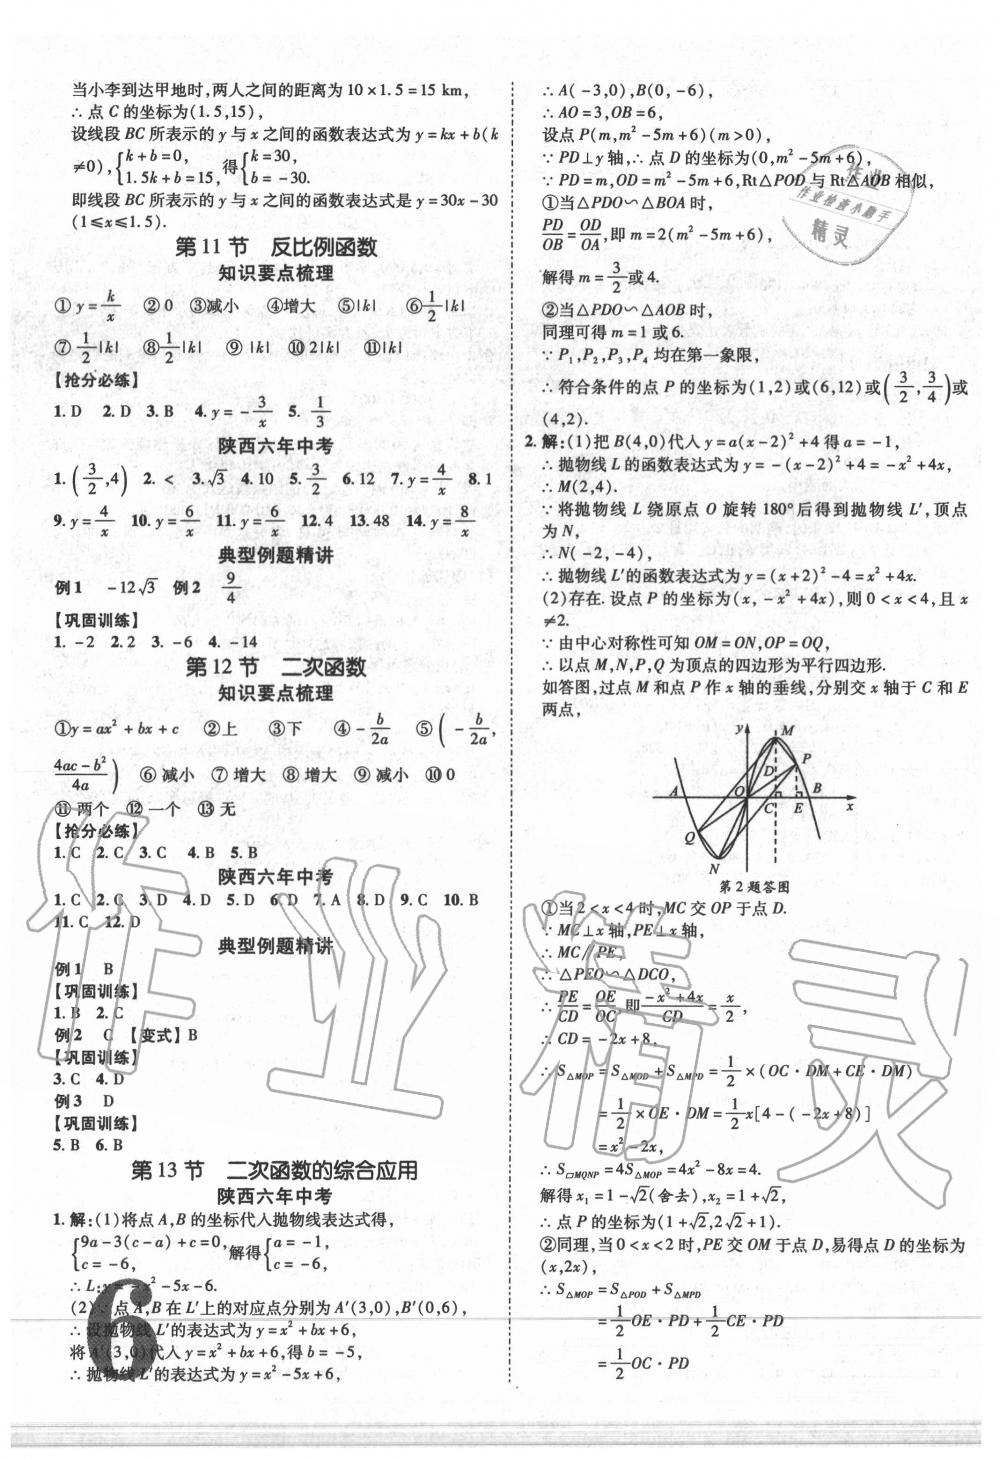 当小李到达甲地时,两人之间的距离为10×1.5=15 km,
∴点C的坐标为(1.5,15),
设线段BC所表示的y与x之间的函数表达式为y=kx+b(k
≠0),{k+b=0, 1.5k+b=15, 得{k=30, b=-30.
即线段BC所表示的y与x之间的函数表达式是y=30x-30
(1≤x≤1.5).
第11节 反比例函数
知识要点梳理
①y=k/x ②0 ③减小 ④增大 ⑤|k| ⑥1/2|k|
⑦1/2|k| ⑧1/2|k| ⑨|k| ⑩2|k| ⑪|k|
【抢分必练】
1. D 2. D 3. B 4. y=-3/x 5. 1/3
陕西六年中考
1. (3/2,4) 2. < 3. √3 4. 10 5. 3/2 6. 12 7. y=4/x 8. 1
9. y=4/x 10. y=6/x 11. y=6/x 12. 4 13. 48 14. y=8/x
典型例题精讲
例1 -12√3 例2 9/4
【巩固训练】
1. -2 2. 2 3. -6 4. -14
第12节 二次函数
知识要点梳理
①y=ax²+bx+c ②上 ③下 ④-b/2a ⑤(-b/2a,
4ac-b²/4a) ⑥减小 ⑦增大 ⑧增大 ⑨减小 ⑩0
⑪两个 ⑫一个 ⑬无
【抢分必练】
1. C 2. C 3. C 4. B 5. B
陕西六年中考
1. C 2. C 3. D 4. D 5. D 6. D 7. A 8. D 9. C 10. B
11. C 12. D
典型例题精讲
例1 B
【巩固训练】
1. B 2. C
例2 C 【变式】B
【巩固训练】
3. C 4. D
例3 D
【巩固训练】
5. B 6. B
第13节 二次函数的综合应用
陕西六年中考
1. 解:(1)将点A,B的坐标代入抛物线表达式得,
{9a-3(c-a)+c=0, c=-6, 解得{a=-1, c=-6,
∴L:y=-x²-5x-6.
(2)∵点A,B在L′上的对应点分别为A′(3,0),B′(0,6),
∴设抛物线L′的表达式为y=x²+bx+6,
将A′(3,0)代入y=x²+bx+6,得b=-5,
∴抛物线L′的表达式为y=x²-5x+6,
6
∴A(-3,0),B(0,-6),
∴AO=3,OB=6,
设点P(m,m²-5m+6)(m>0),
∵PD⊥y轴,∴点D的坐标为(0,m²-5m+6),
∵PD=m,OD=m²-5m+6,Rt△POD与Rt△AOB相似,
①当△PDO∽△BOA时,
PD/OB=OD/OA,即m=2(m²-5m+6),
解得m=3/2或4.
②当△PDO∽△AOB时,
同理可得m=1或6.
∵P₁,P₂,P₃,P₄均在第一象限,
∴符合条件的点P的坐标为(1,2)或(6,12)或(3/2,3/4)或
(4,2).
2. 解:(1)把B(4,0)代入y=a(x-2)²+4得a=-1,
∴抛物线L的函数表达式为y=-(x-2)²+4=-x²+4x,
∴M(2,4).
∵将抛物线L绕原点O旋转180°后得到抛物线L′,顶点
为N,
∴N(-2,-4),
∴抛物线L′的函数表达式为y=(x+2)²-4=x²+4x.
(2)存在.设点P的坐标为(x,-x²+4x),则0<x<4,且x
≠2.
∵由中心对称性可知OM=ON,OP=OQ,
∴以点M,N,P,Q为顶点的四边形为平行四边形.
如答图,过点M和点P作x轴的垂线,分别交x轴于C和E
两点,
y M P D A O C E B x Q N
第2题答图
①当2<x<4时,MC交OP于点D.
∵MC⊥x轴,PE⊥x轴,
∴MC∥PE,
∴△PEO∽△DCO,
∴PE/CD=OE/OC,即-x²+4x/CD=x/2,
∴CD=-2x+8,
∴S△MOP=S△MOD+S△MPD=1/2×(OC·DM+CE·DM)
=1/2×OE·DM=1/2x[4-(-2x+8)]
=x²-2x,
∴S□MQNP=4S△MOP=4x²-8x=4.
解得x₁=1-√2(舍去),x₂=1+√2,
∴点P的坐标为(1+√2,2√2+1).
②同理,当0<x<2时,PE交OM于点D,易得点D的坐标为
(x,2x),
∴S△MOP=S△POD+S△MPD
=1/2OE·PD+1/2CE·PD
=1/2OC·PD
作业
作业检查小助手
精灵
作业精灵